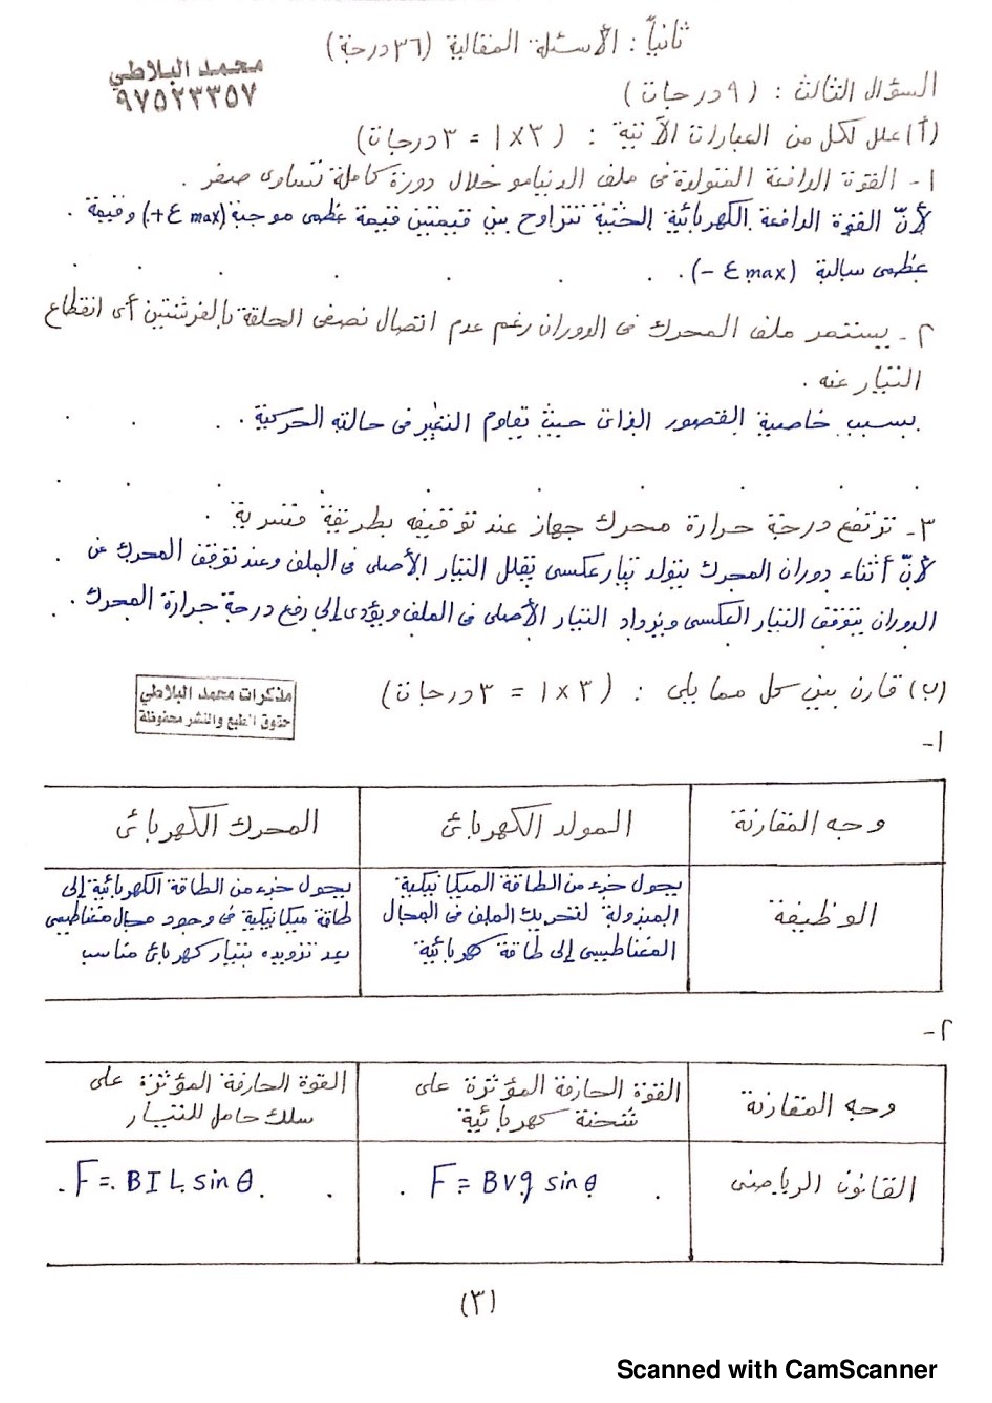 ثانياً : الأسئلة المقالية (٣٦ درجة)
محمد البلاطي
٩٧٥٢٣٣٥٧
السؤال الثالث : (٩ درجات)
(أ) علل لكل من العبارات الآتية : (٣ × ١ = ٣ درجات)
١- القوة الدافعة المتولدة فى ملف الدنيامو خلال دورة كاملة تساوى صفر .
لأنّ القوة الدافعة الكهربائية الحثية تتراوح بين قيمتين قيمة عظمى موجبة (+ε max) وقيمة
عظمى سالبة (-ε max) .
٢- يستمر ملف المحرك فى الدوران رغم عدم اتصال نصفى الحلقة بالفرشتين أى انقطاع
التيار عنه .
بسبب خاصية القصور الذاتى حيث تقاوم التغير فى حالته الحركية .
٣- ترتفع درجة حرارة محرك جهاز عند توقيفه بطريقة قسرية .
لأنّ أثناء دوران المحرك يتولد تيار عكسى يقلل التيار الأصلى فى الملف وعند توقف المحرك عن
الدوران يتوقف التيار العكسى ويزداد التيار الأصلى فى الملف ويؤدى إلى رفع درجة حرارة المحرك .
(ب) قارن بين كل مما يلى : (٣ × ١ = ٣ درجات)
مذكرات محمد البلاطي
حقوق الطبع والنشر محفوظة
١-
وجه المقارنة
المولد الكهربائى
المحرك الكهربائى
الوظيفة
يحول جزء من الطاقة الميكانيكية
المبذولة لتحريك الملف فى المجال
المغناطيسى إلى طاقة كهربائية
يحول جزء من الطاقة الكهربائية إلى
طاقة ميكانيكية فى وجود مجال مغناطيسى
بعد تزويده بتيار كهربائى مناسب
٢-
وجه المقارنة
القوة الحارفة المؤثرة على
شحنة كهربائية
القوة الحارفة المؤثرة على
سلك حامل للتيار
القانون الرياضى
F = B v q sin θ
F = B I L sin θ
(٣)
Scanned with CamScanner